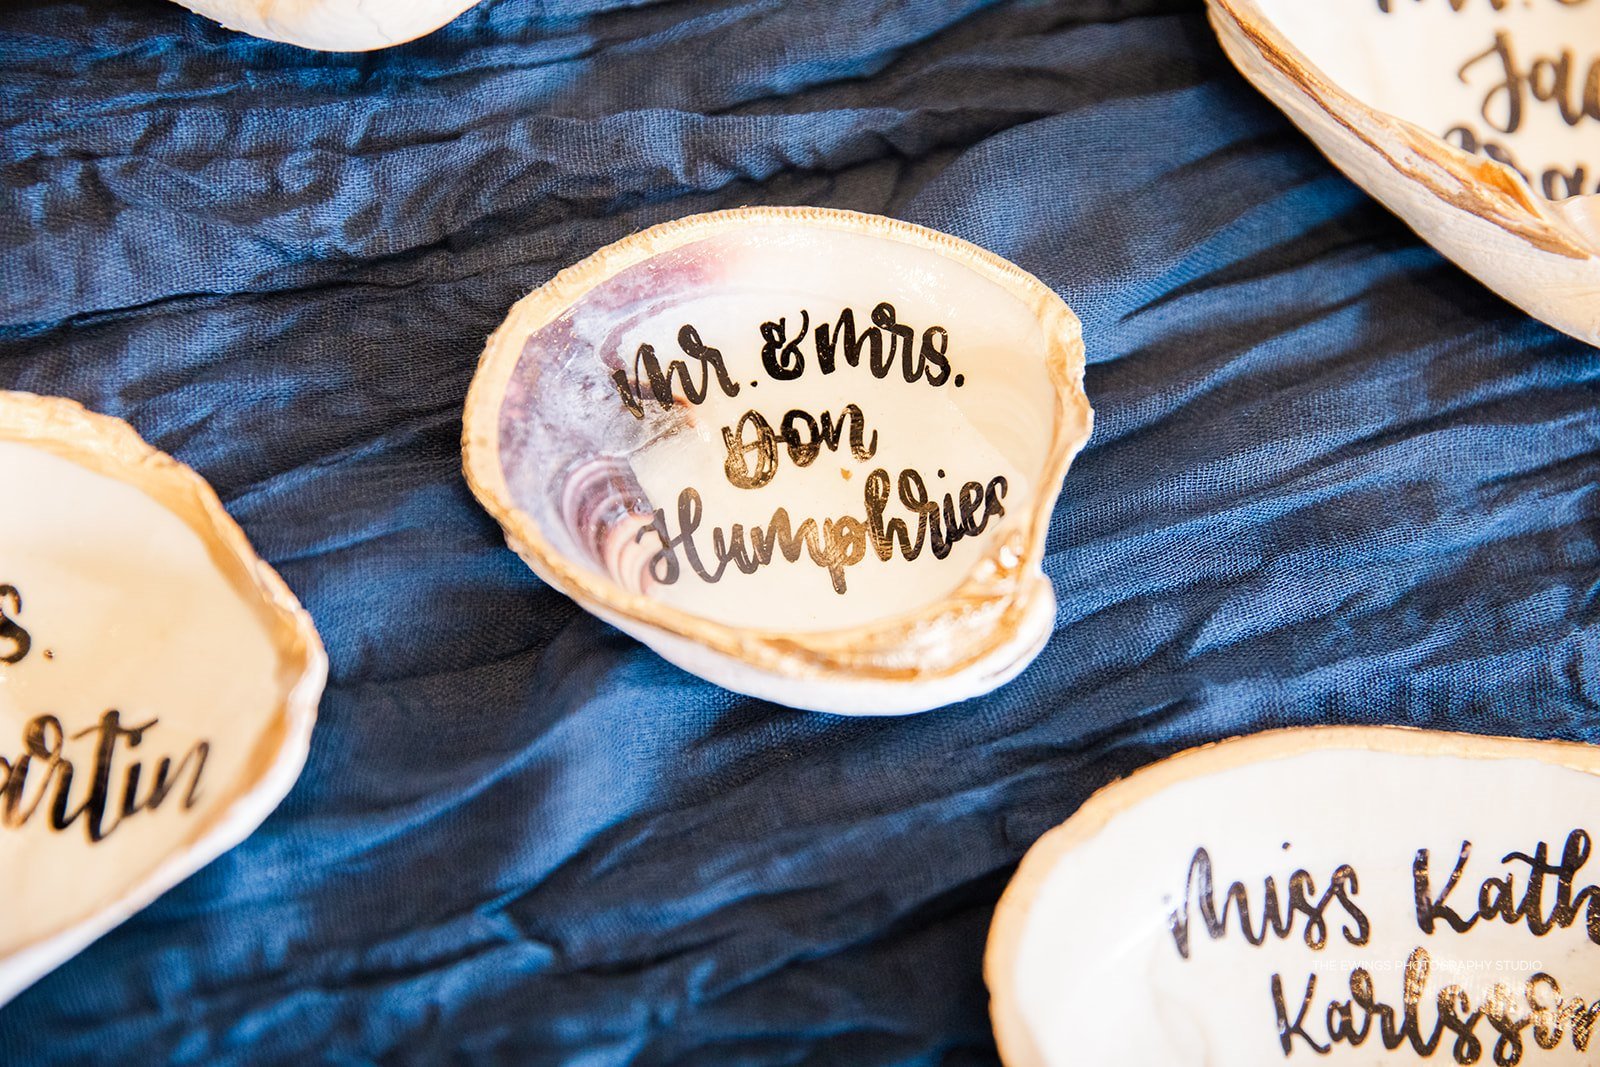 Mr. & Mrs.
Don
Humphries
Miss Kath
Karlsson
THE EWINGS PHOTOGRAPHY STUDIO
s.
artin
Ja